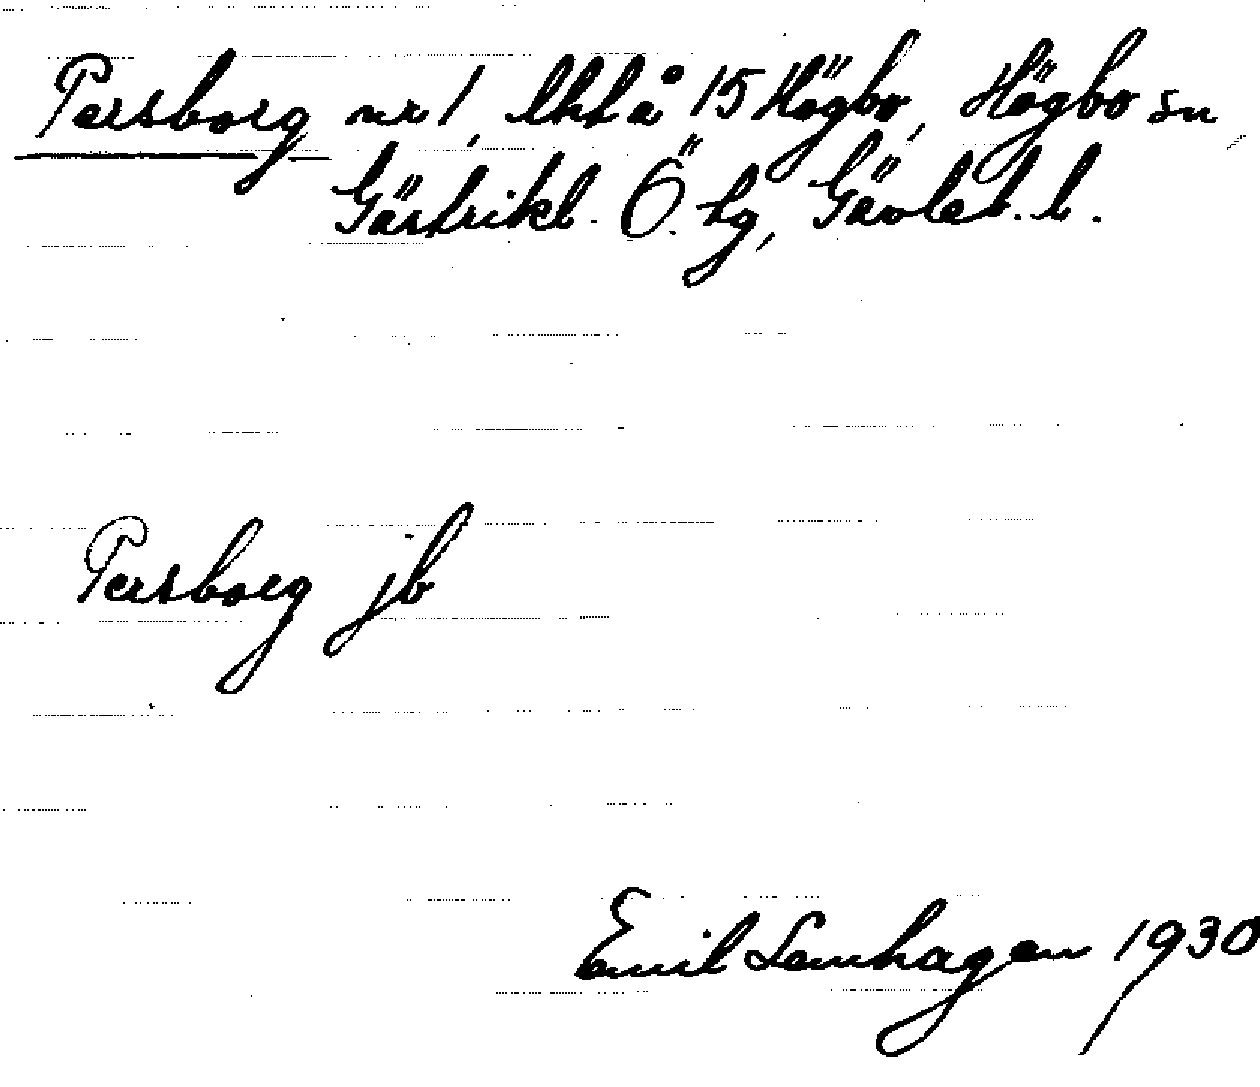 Persborg nr 1, lht å 15 Högbo, Högbo sn,
Gästrikl. Ö. tg, Gävleb. l.
Persborg jb
Emil Lenhagen 1930